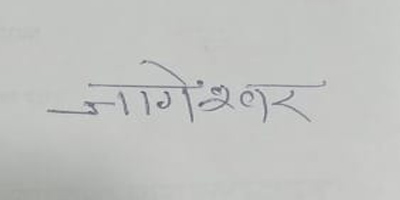 जागेश्वर